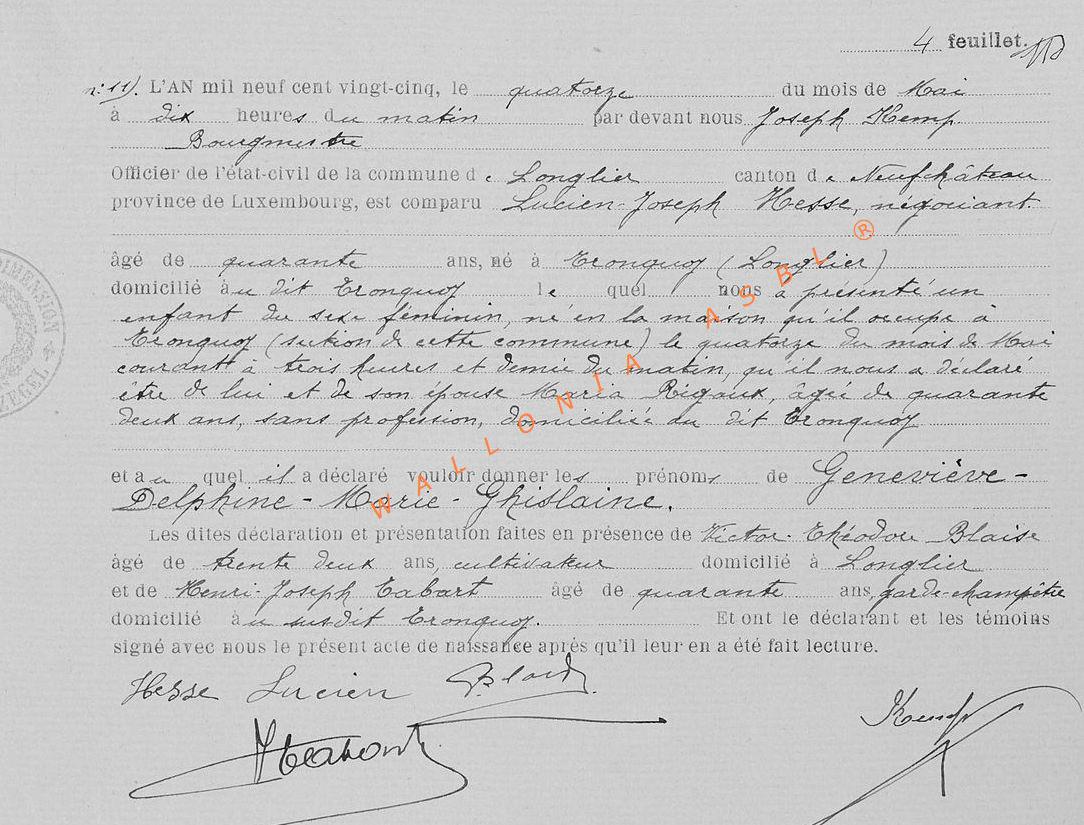 4 feuillet.
n: 11). L'AN mil neuf cent vingt-cinq, le quatorze du mois de Mai
à dix heures du matin par devant nous Joseph Kemp.
Bourgmestre
Officier de l'état-civil de la commune de Longlier canton de Neufchâteau
province de Luxembourg, est comparu Lucien-Joseph Hesse, négociant.
âgé de quarante ans, né à Tronquoy (Longlier)
domicilié au dit Tronquoy lequel nous a présenté un
enfant du sexe féminin, né en la maison qu'il occupe à
Tronquoy (section de cette commune) le quatorze du mois de Mai
courant à trois heures et demie du matin, qu'il nous a déclaré
être de lui et de son épouse Maria Rigaux, âgée de quarante
deux ans, sans profession, domiciliée au dit Tronquoy
et au quel il a déclaré vouloir donner les prénoms de Geneviève-
Delphine-Marie-Ghislaine.
Les dites déclaration et présentation faites en présence de Victor-Théodore Blaise
âgé de trente deux ans, cultivateur domicilié à Longlier
et de Henri-Joseph Tabart âgé de quarante ans, garde-champêtre
domicilié au susdit Tronquoy. Et ont le déclarant et les témoins
signé avec nous le présent acte de naissance après qu'il leur en a été fait lecture.
Hesse Lucien
Kemp
WALLONIA ASBL ®